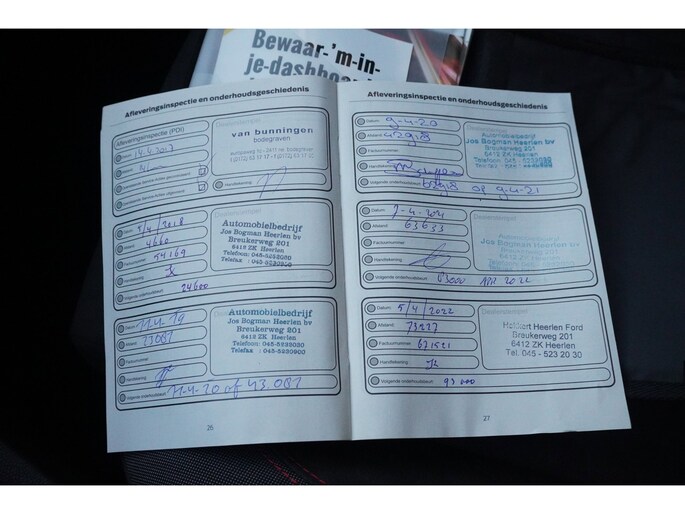 Bewaar-'m-in-
je-dashboard
Afleveringsinspectie en onderhoudsgeschiedenis
Afleveringsinspectie (PDI)
Dealerstempel
van bunningen
bodegraven
Datum
Handtekening
Datum 5/4/2018
Afstand 4660
Factuurnummer 54169
Handtekening
Volgende onderhoudsbeurt 24600
Automobielbedrijf
Jos Bogman Heerlen bv
Breukerweg 201
6412 ZK Heerlen
Telefoon: 045-5232030
Telefax : 045-5230900
Datum 11-4-19
Afstand 23081
Factuurnummer
Handtekening
Volgende onderhoudsbeurt 11-4-20 of 43.081
Automobielbedrijf
Jos Bogman Heerlen bv
Breukerweg 201
6412 ZK Heerlen
Telefoon: 045-5232030
Telefax : 045-5230900
26
Afleveringsinspectie en onderhoudsgeschiedenis
Datum 9-4-20
Afstand
Factuurnummer
Handtekening
Volgende onderhoudsbeurt op 9-4-21
Dealerstempel
Automobielbedrijf
Jos Bogman Heerlen bv
Breukerweg 201
6412 ZK Heerlen
Datum 7-4-2021
Afstand 63633
Factuurnummer
Handtekening
Volgende onderhoudsbeurt 83000 APR 2022
Dealerstempel
Automobielbedrijf
Jos Bogman Heerlen bv
Breukerweg 201
6412 ZK Heerlen
Datum 5/4/2022
Afstand 73227
Factuurnummer 671521
Handtekening
Volgende onderhoudsbeurt 93.000
Dealerstempel
Hekkert Heerlen Ford
Breukerweg 201
6412 ZK Heerlen
Tel. 045 - 523 20 30
27